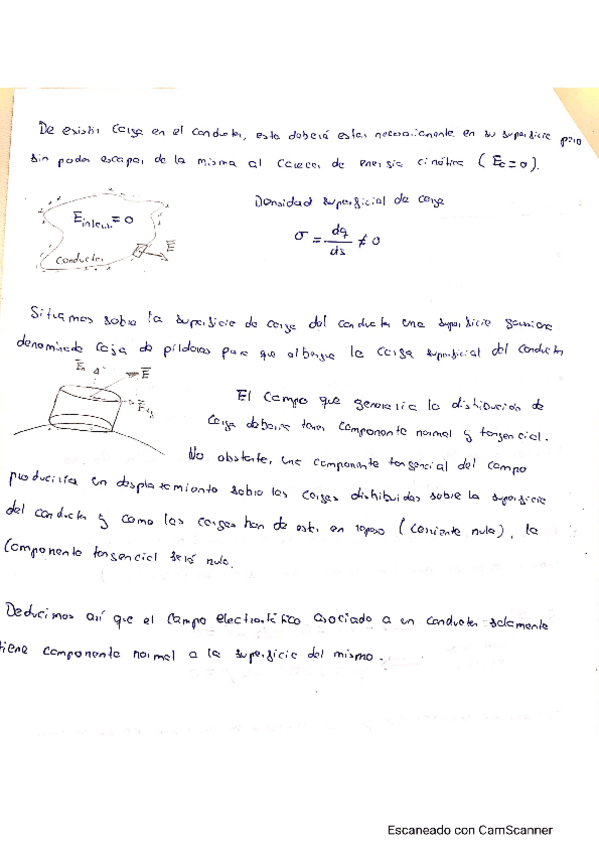 De existir carga en el conductor, esta deberá estar necesariamente en su superficie pero
sin poder escapar de la misma al carecer de energía cinética (Ec=0).
Densidad superficial de carga
E⃗ interior = 0
σ = dq/ds ≠ 0
E⃗
conductor
Situamos sobre la superficie de carga del conductor una superficie gaussiana
denominada caja de píldoras para que albergue la carga superficial del conductor
E⃗
El campo que generaría la distribución de
carga debería tener componente normal y tangencial.
No obstante, una componente tangencial del campo
produciría un desplazamiento sobre las cargas distribuidas sobre la superficie
del conductor y como las cargas han de estar en reposo (corriente nula), la
componente tangencial será nula.
Deducimos así que el campo electrostático asociado a un conductor solamente
tiene componente normal a la superficie del mismo.
Escaneado con CamScanner